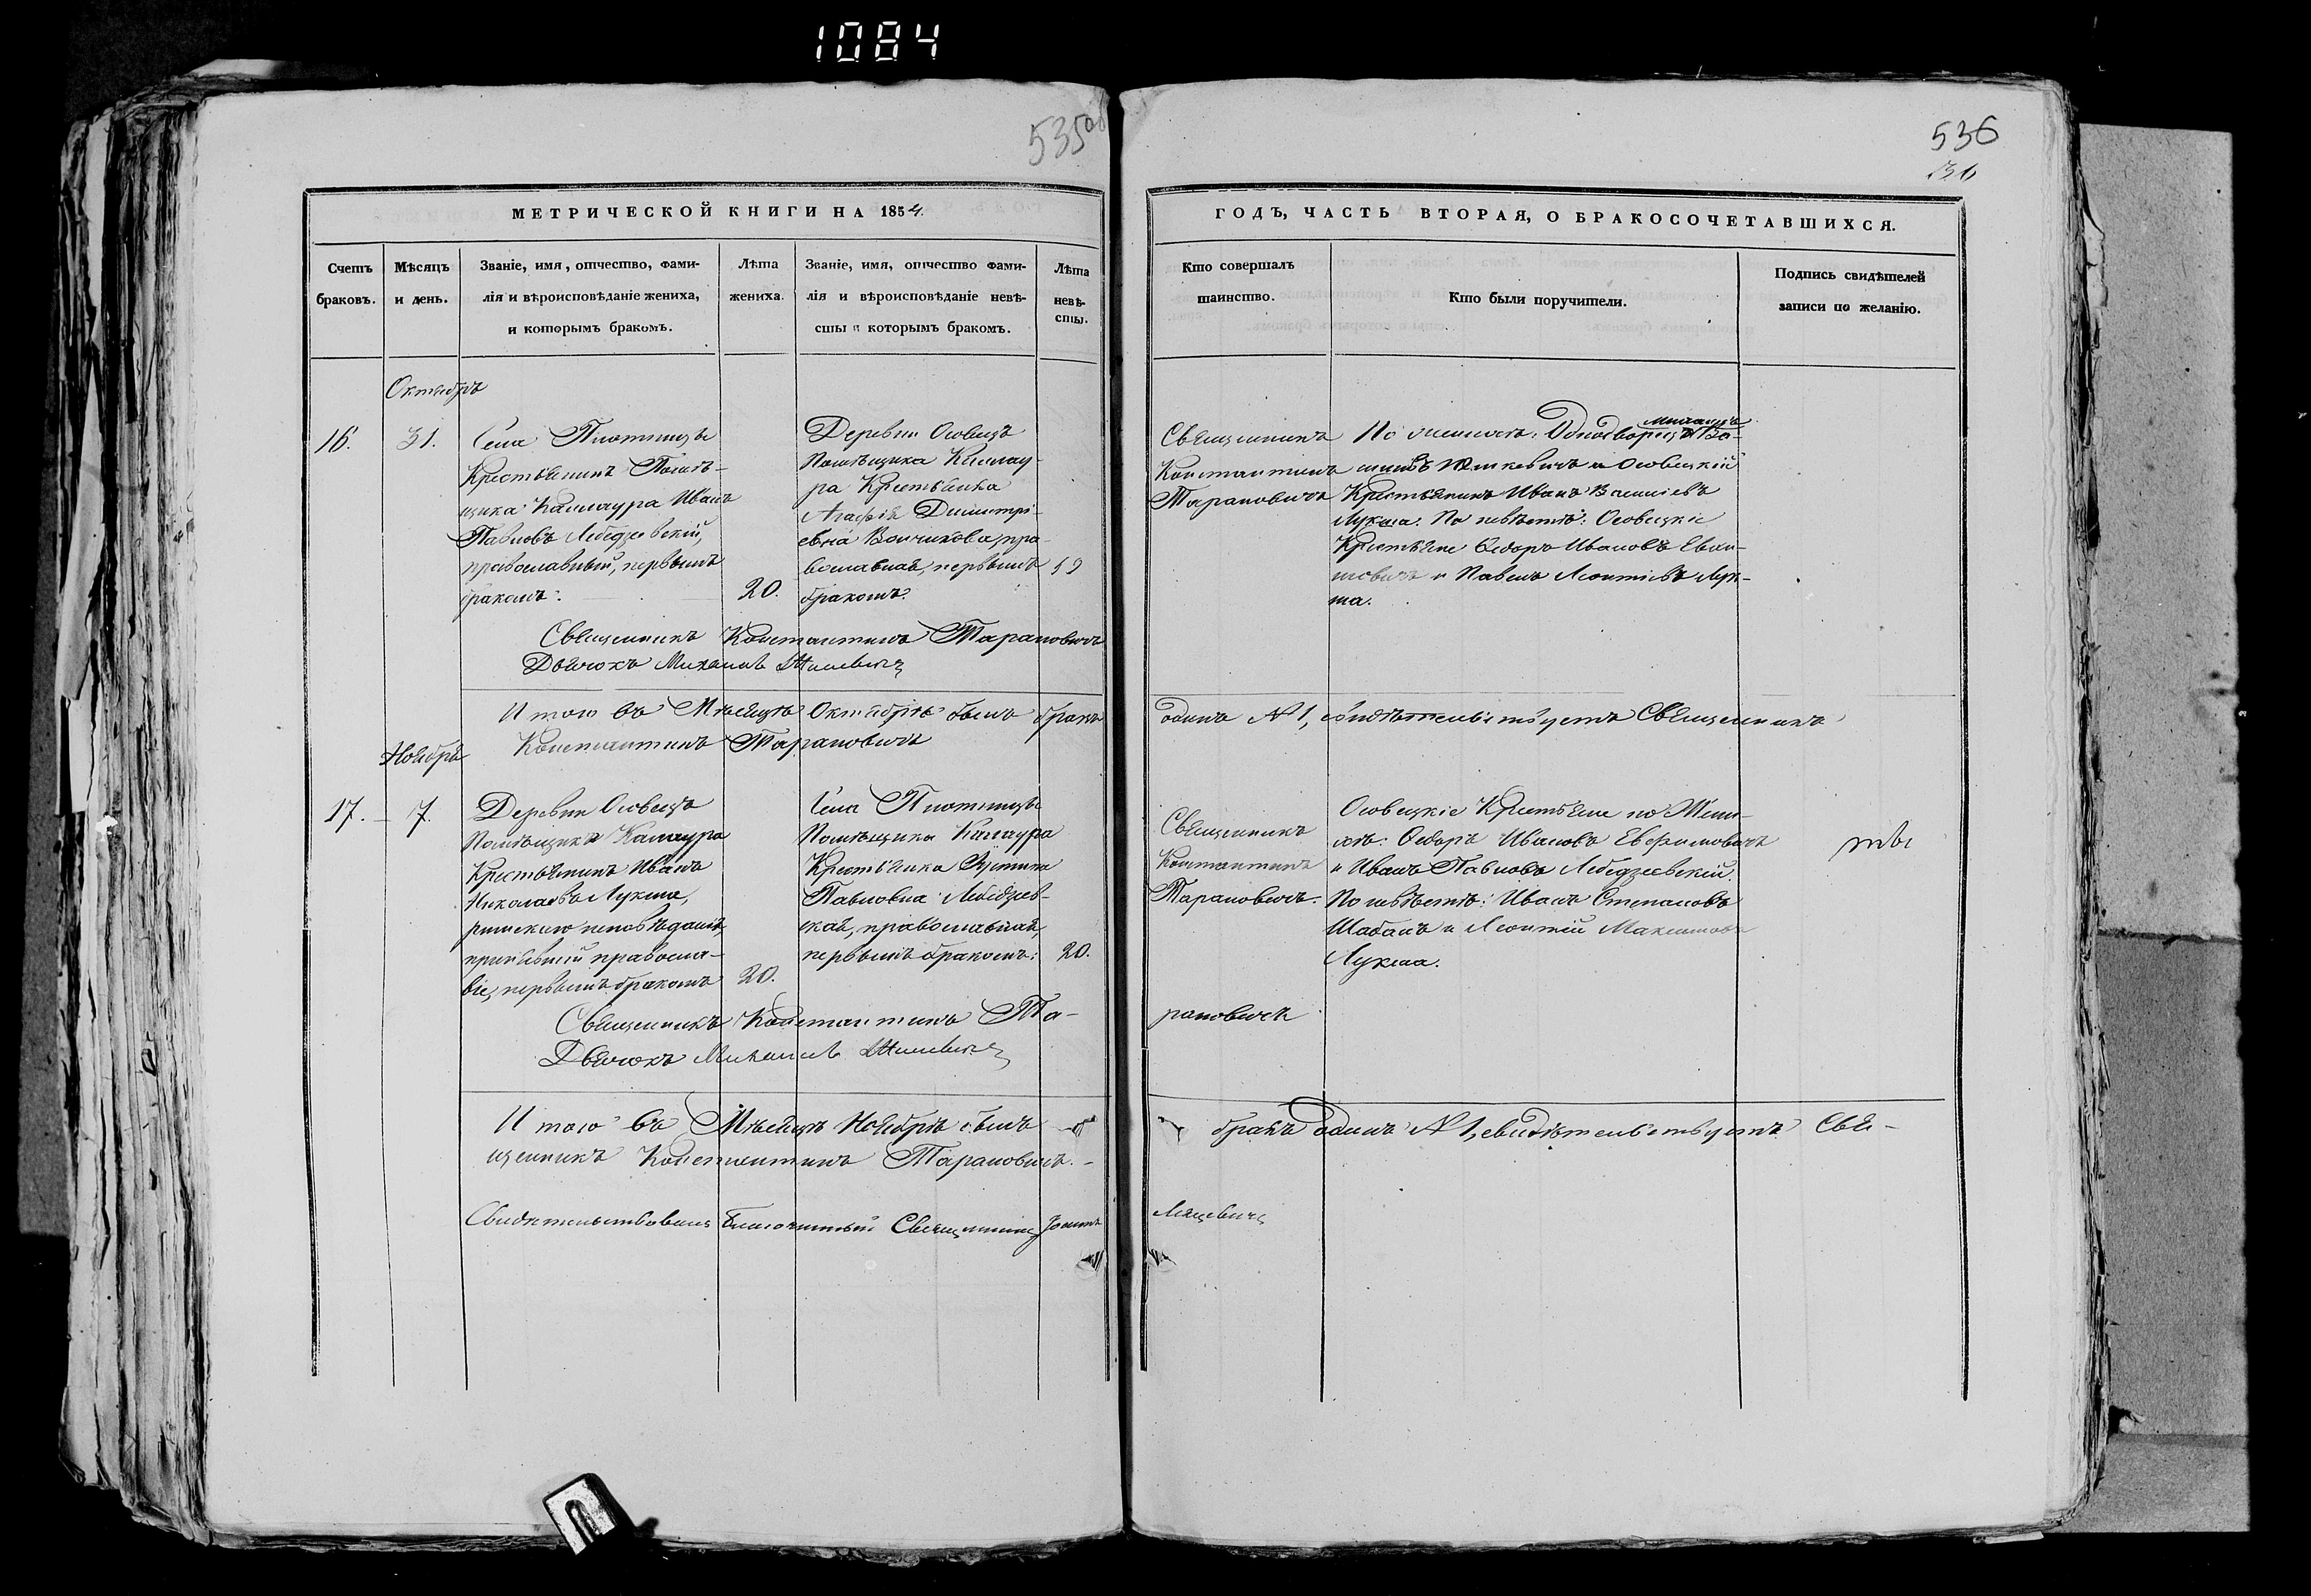 1084
535 об
536
136
МЕТРИЧЕСКОЙ КНИГИ НА 1854.
ГОДЪ, ЧАСТЬ ВТОРАЯ, О БРАКОСОЧЕТАВШИХСЯ.
Счетъ
браковъ.
Мѣсяцъ
и день.
Званіе, имя, отчество, фами-
лія и вѣроисповѣданіе жениха,
и которымъ бракомъ.
Лѣта
жениха.
Званіе, имя, отчество фами-
лія и вѣроисповѣданіе невѣ-
сты и которымъ бракомъ.
Лѣта
невѣ-
сты.
Кто совершалъ
таинство.
Кто были поручители.
Подпись свидѣтелей
записи по желанію.
Октябрь
16.
31.
Села Плотницы
Крестьянинъ Помѣ-
щика Каллаура Иванъ
Павловъ Лебедзевскій,
православный, первымъ
бракомъ.
20.
Деревни Осовецъ
Помѣщика Каллау-
ра Крестьянка
Агафія Димитрі-
евна Волчикова, пра-
вославная, первымъ
бракомъ.
19
Священникъ
Константинъ
Тарановичъ
По женихѣ: Однодворецъ Михаилъ
и Осовецкій
Крестьянинъ Иванъ
Лукша. По невѣстѣ: Осовецкіе
Крестьяне Ѳедоръ Ивановъ Евхи-
мовичъ и Павелъ Леонтіевъ Лук-
ша.
Священникъ Константинъ Тарановичъ
Дьячокъ Михаилъ
Итого въ Мѣсяцѣ Октябрѣ былъ бракъ
одинъ № 1, свидѣтельствуетъ Священникъ
Константинъ Тарановичъ
Ноябрь
17.
7.
Деревни Осовецъ
Помѣщика Каллаура
Крестьянинъ Иванъ
Николаевъ Лукша,
римскаго исповѣданія,
принявшій правосла-
віе, первымъ бракомъ
20.
Села Плотницы
Помѣщика Каллаура
Крестьянка Іустина
Павловна Лебедзев-
ская, православная,
первымъ бракомъ.
20.
Священникъ
Константинъ
Тарановичъ.
Осовецкіе Крестьяне по Жени-
хѣ: Ѳедоръ Ивановъ Евфимовичъ
и Иванъ Павловъ Лебедзевскій.
По невѣстѣ: Иванъ Степановъ
Шабанъ и Леонтій Максимовъ
Лукша.
Священникъ Константинъ Та-
рановичъ
Дьячокъ Михаилъ
Итого въ Мѣсяцѣ Ноябрѣ былъ
бракъ одинъ № 1, свидѣтельствуетъ Свя-
щенникъ Константинъ Тарановичъ.
Свидѣтельствовалъ Благочинный Священникъ Іоаннъ